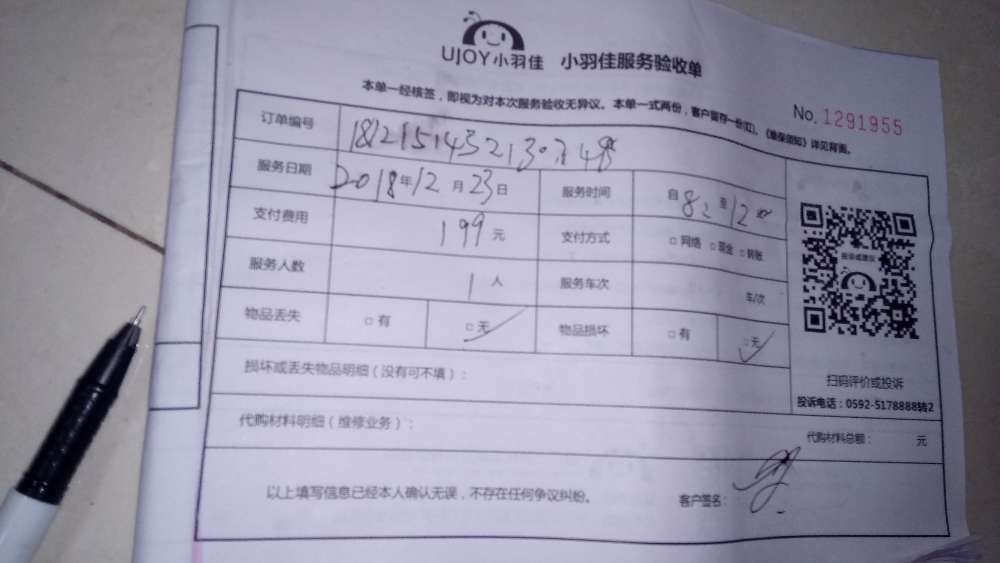 UJOY小羽佳 小羽佳服务验收单
本单一经核签，即视为对本次服务验收无异议。本单一式两份，客户留存一份(红)，《维保须知》详见背面。
No. 1291955
订单编号
服务日期 2018年12月23日 服务时间 自 至
支付费用 199元 支付方式 □网络 □现金 □转账
服务人数 1人 服务车次 车/次
物品丢失 □有 □无 物品损坏 □有 □无
损坏或丢失物品明细（没有可不填）：
扫码评价或投诉
投诉电话：0592-5178888转2
代购材料明细（维修业务）： 代购材料总额： 元
以上填写信息已经本人确认无误，不存在任何争议纠纷。 客户签名：